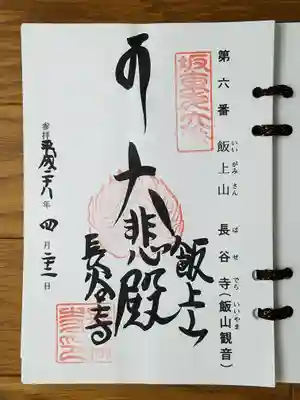 第六番 飯上山 長谷寺(飯山観音)
いいがみさん はせでら いいやま
坂東第六番
飯上山
大悲殿
長谷寺
参拝 平成二十八年 四月 日